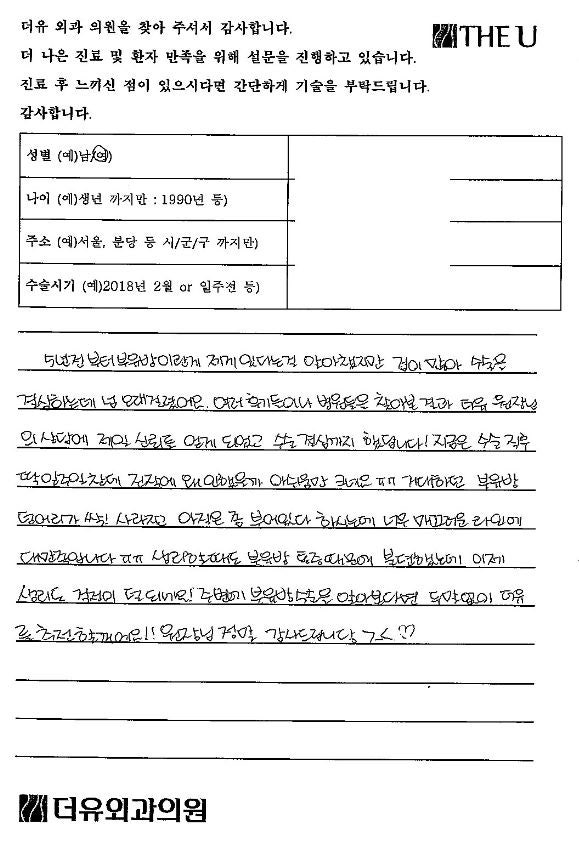 더유 외과 의원을 찾아 주셔서 감사합니다.
THE U
더 나은 진료 및 환자 만족을 위해 설문을 진행하고 있습니다.
진료 후 느끼신 점이 있으시다면 간단하게 기술을 부탁드립니다.
감사합니다.
성별 (예)남/여)
나이 (예)생년 까지만 : 1990년 등)
주소 (예)서울, 분당 등 시/군/구 까지만)
수술시기 (예)2018년 2월 or 일주전 등)
5년전부터 부유방이란게 제게 있다는걸 알아챘지만 겁이 많아 수술은
결심하는데 넘 오래걸렸어요. 여러 후기들이나 병원들을 찾아본 결과 더유 원장님
의 상담에 제일 신뢰를 얻게 되었고 수술 결심까지 했답니다! 지금은 수술 직후
딱 일주일찬데 진작에 왜 안했을까 아쉬움만 크네요 ㅠㅠ 거대하던 부유방
덩어리가 싹! 사라지고 아직은 좀 부어있다 하시는데 너무 매끄러운 라인에
대만족입니다 ㅠㅠ 생리할때마다 부유방 통증때문에 불편했는데 이제
생리도 걱정이 덜 되네요! 주변에 부유방수술을 알아본다면 두말없이 더유
로 추천할게요!! 원장님 정말 감사드립니다 ㄱㅅ ♡
더유외과의원